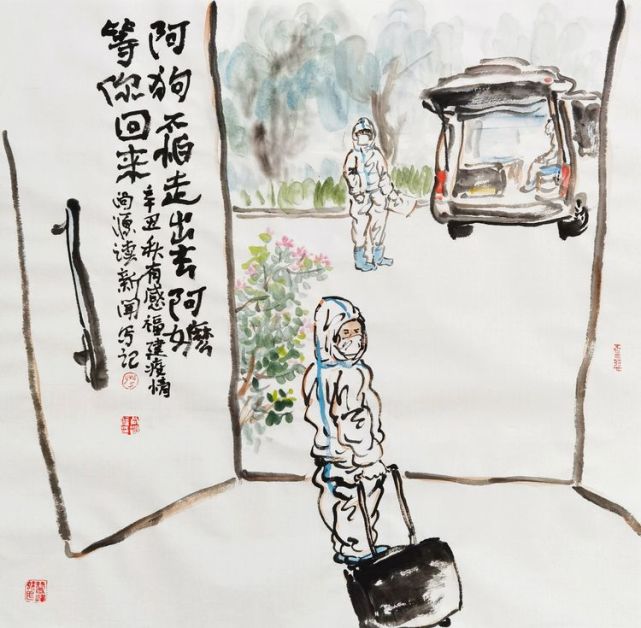 阿狗不怕走出去阿嬷
等你回来
辛丑秋有感福建疫情
尚源读新闻写记